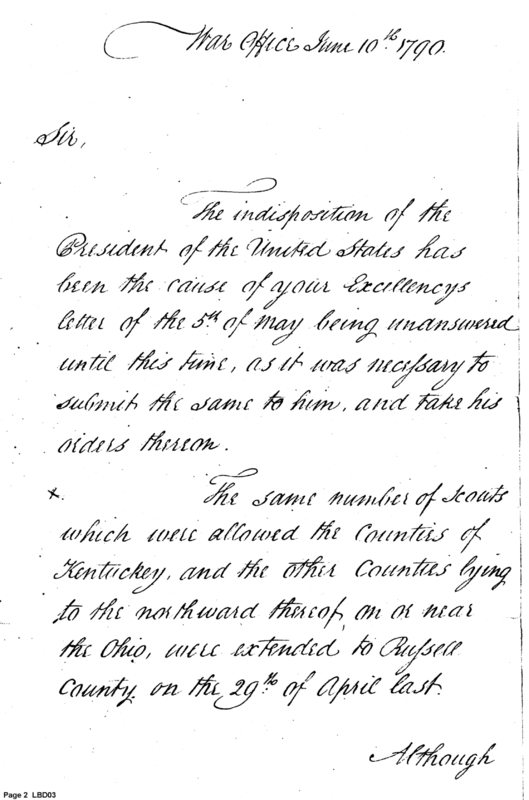 War Office June 10th 1790.
Sir,
The indisposition of the
President of the United States has
been the cause of your Excellencys
letter of the 5th of May being unanswered
until this time, as it was necessary to
submit the same to him, and take his
orders thereon.
x. The same number of Scouts
which were allowed the Counties of
Kentuckey, and the other Counties lying
to the northward thereof, on or near
the Ohio, were extended to Russell
County on the 29th of April last.
Although
Page 2 LBD03